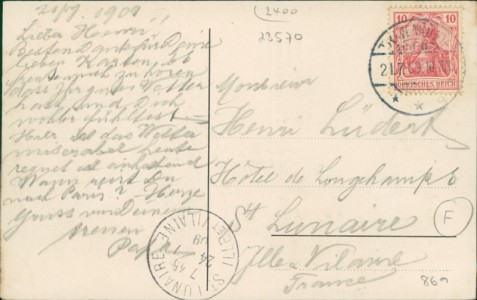 21/7. 1909
Lieber Henri!
Besten Dank für Deine
lieben Karten, ist
zu hören
dass Ihr gutes Wetter
habt und Dich
wohler fühlst.
Hier ist das Wetter
miserabel heute
regnet es anhaltend
Wann
nach Paris? Herze
Gruss von Deinem
treuen
Papa
2400
22570
Monsieur
Henri Lüdert
Hôtel de Longchamps
St Lunaire
Ille & Vilaine
France
F
86a
10 10
DEUTSCHES REICH
21.7.09
ST LUNAIRE
ILLE-ET-VILAINE
7 45
24
09